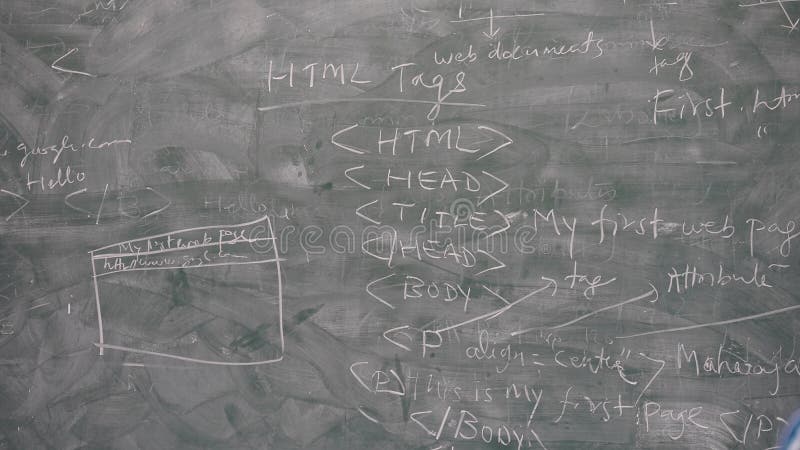 web documents
tag
<
HTML Tags
First.htm
"
<HTML>
google.com
Hello
<HEAD>
> </B>
<TITLE> My first web pag
My first web page
</HEAD>
tag
Attribute
<BODY>
<P align="center"> Maharaja
<B> This is my first page </P>
</BODY>
dreamstime